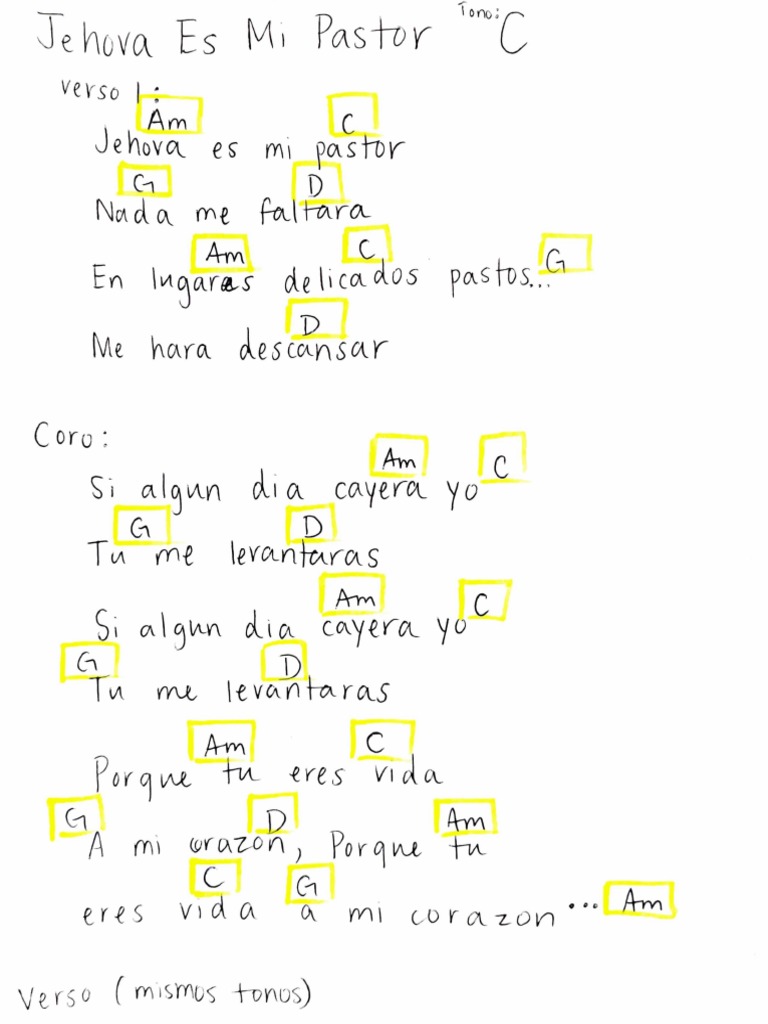 Jehova Es Mi Pastor Tono: C
verso 1:
Am C
Jehova es mi pastor
G D
Nada me faltara
Am C G
En lugares delicados pastos...
D
Me hara descansar
Coro:
Am C
Si algun dia cayera yo
G D
Tu me levantaras
Am C
Si algun dia cayera yo
G D
Tu me levantaras
Am C
Porque tu eres vida
G D Am
A mi corazon, Porque tu
C G
eres vida a mi corazon ... Am
Verso (mismos tonos)